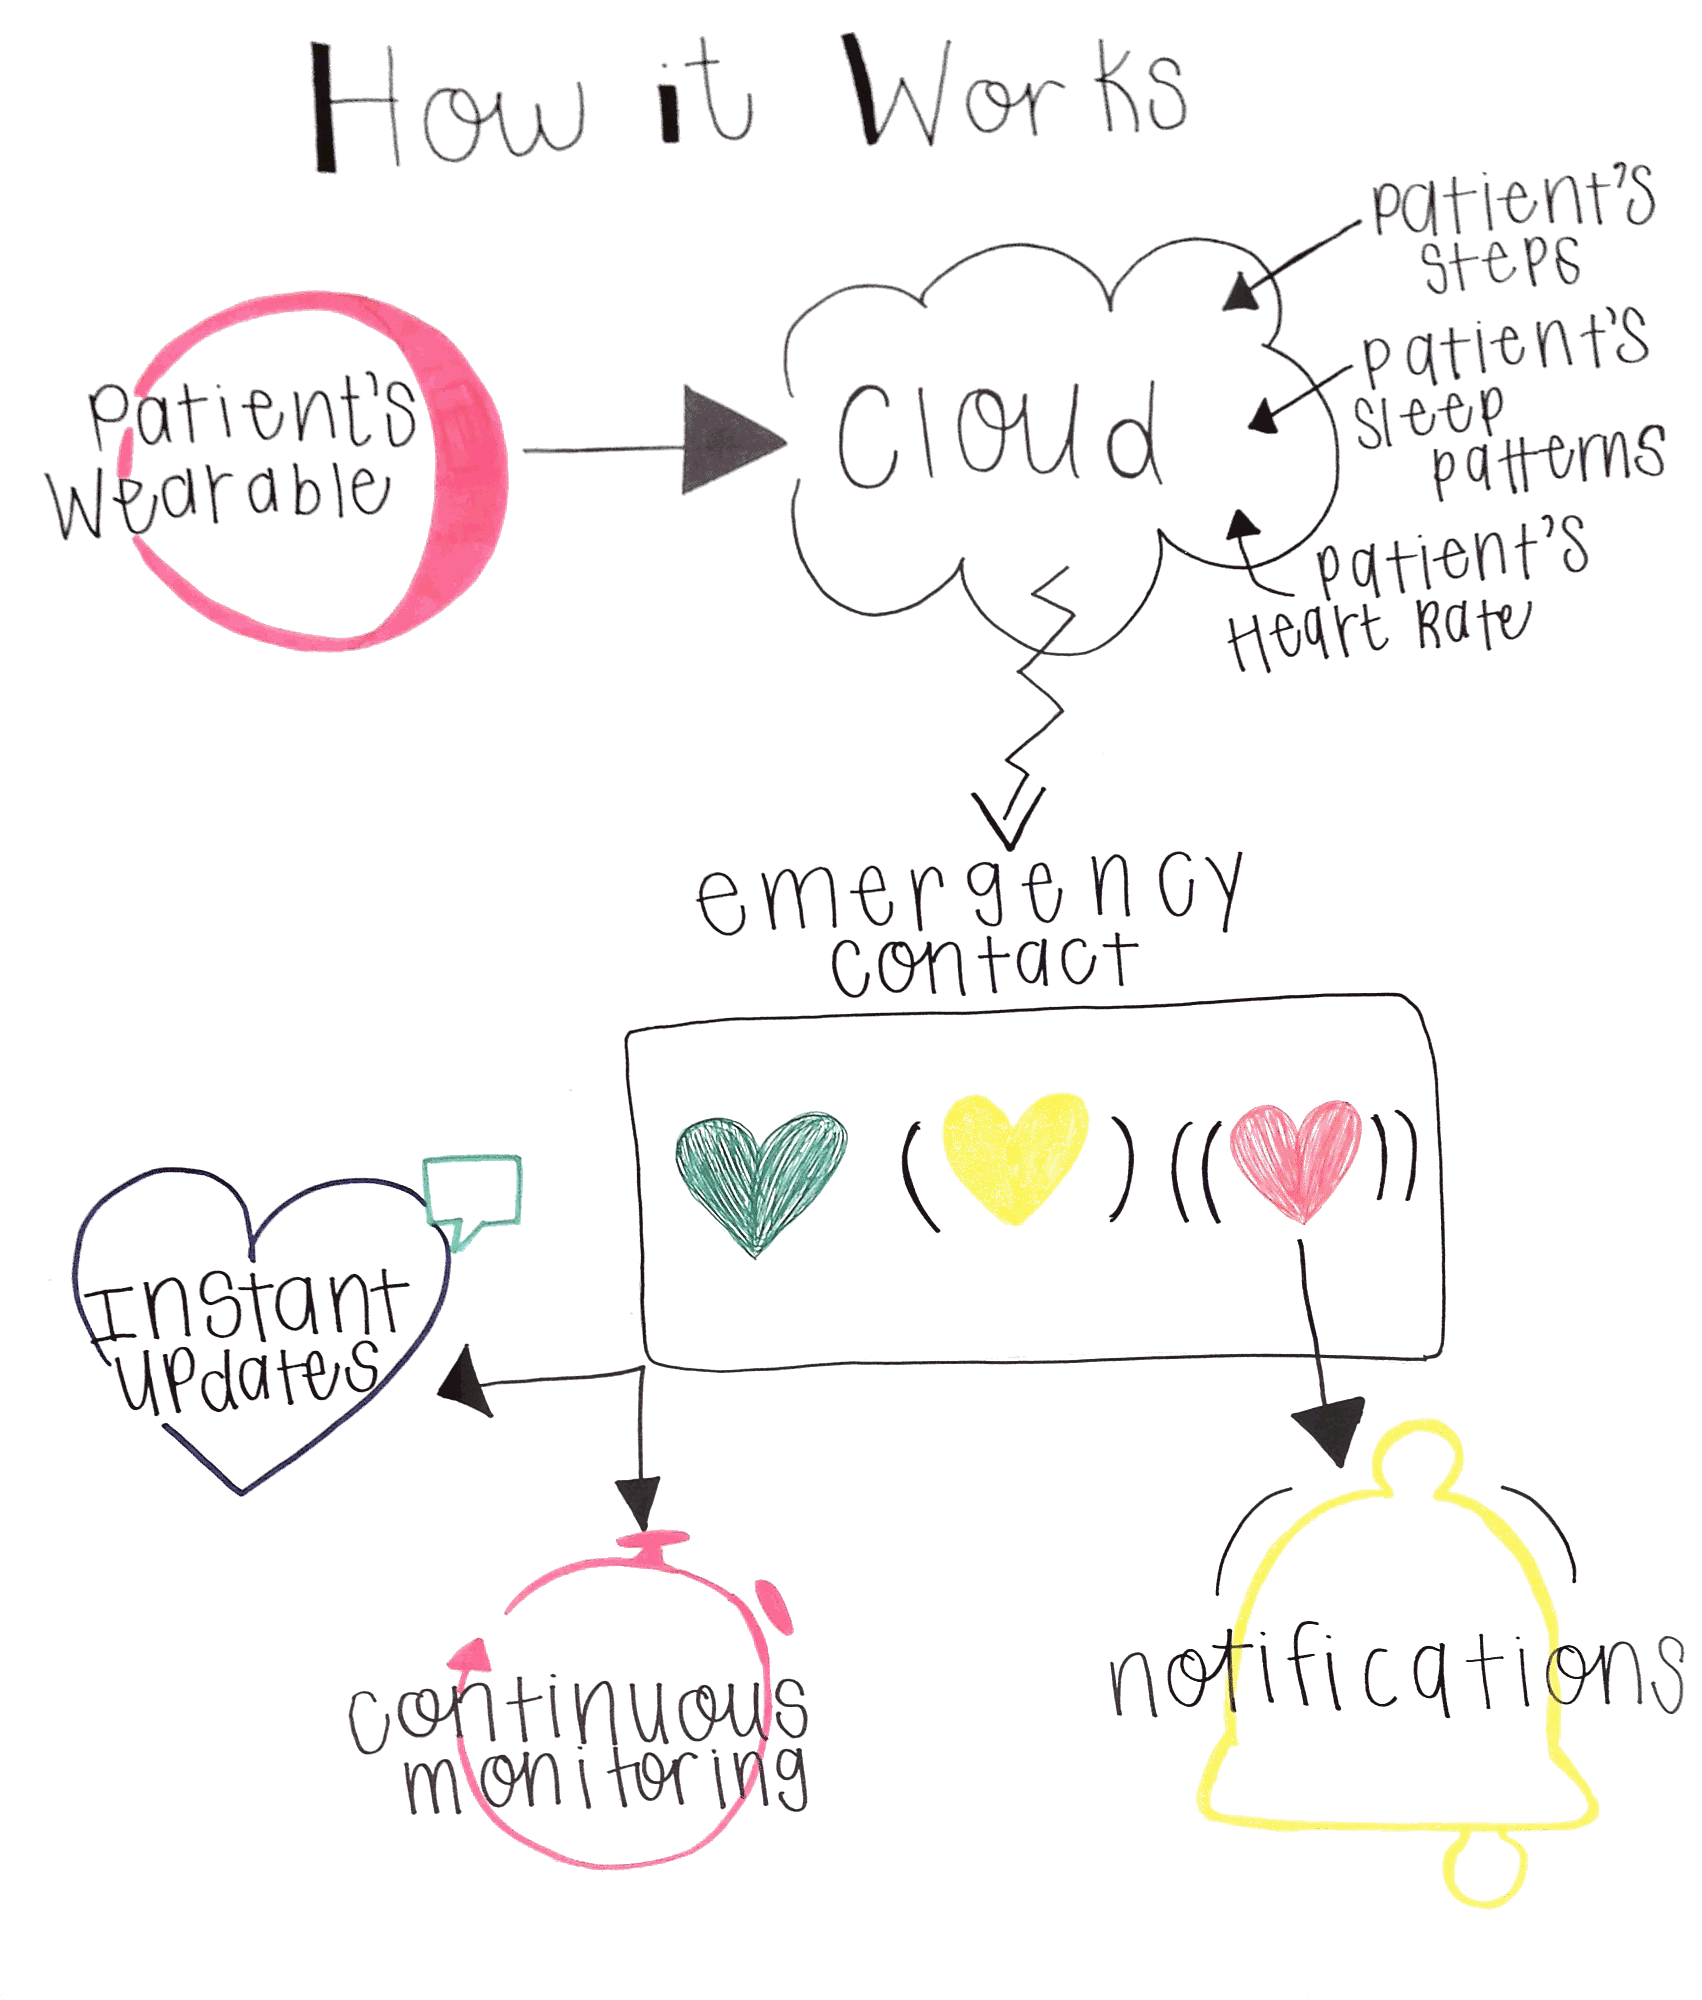 How it Works
Patient's
Wearable
Cloud
patient's
steps
patient's
sleep
patterns
patient's
Heart Rate
emergency
contact
Instant
updates
continuous
monitoring
notifications